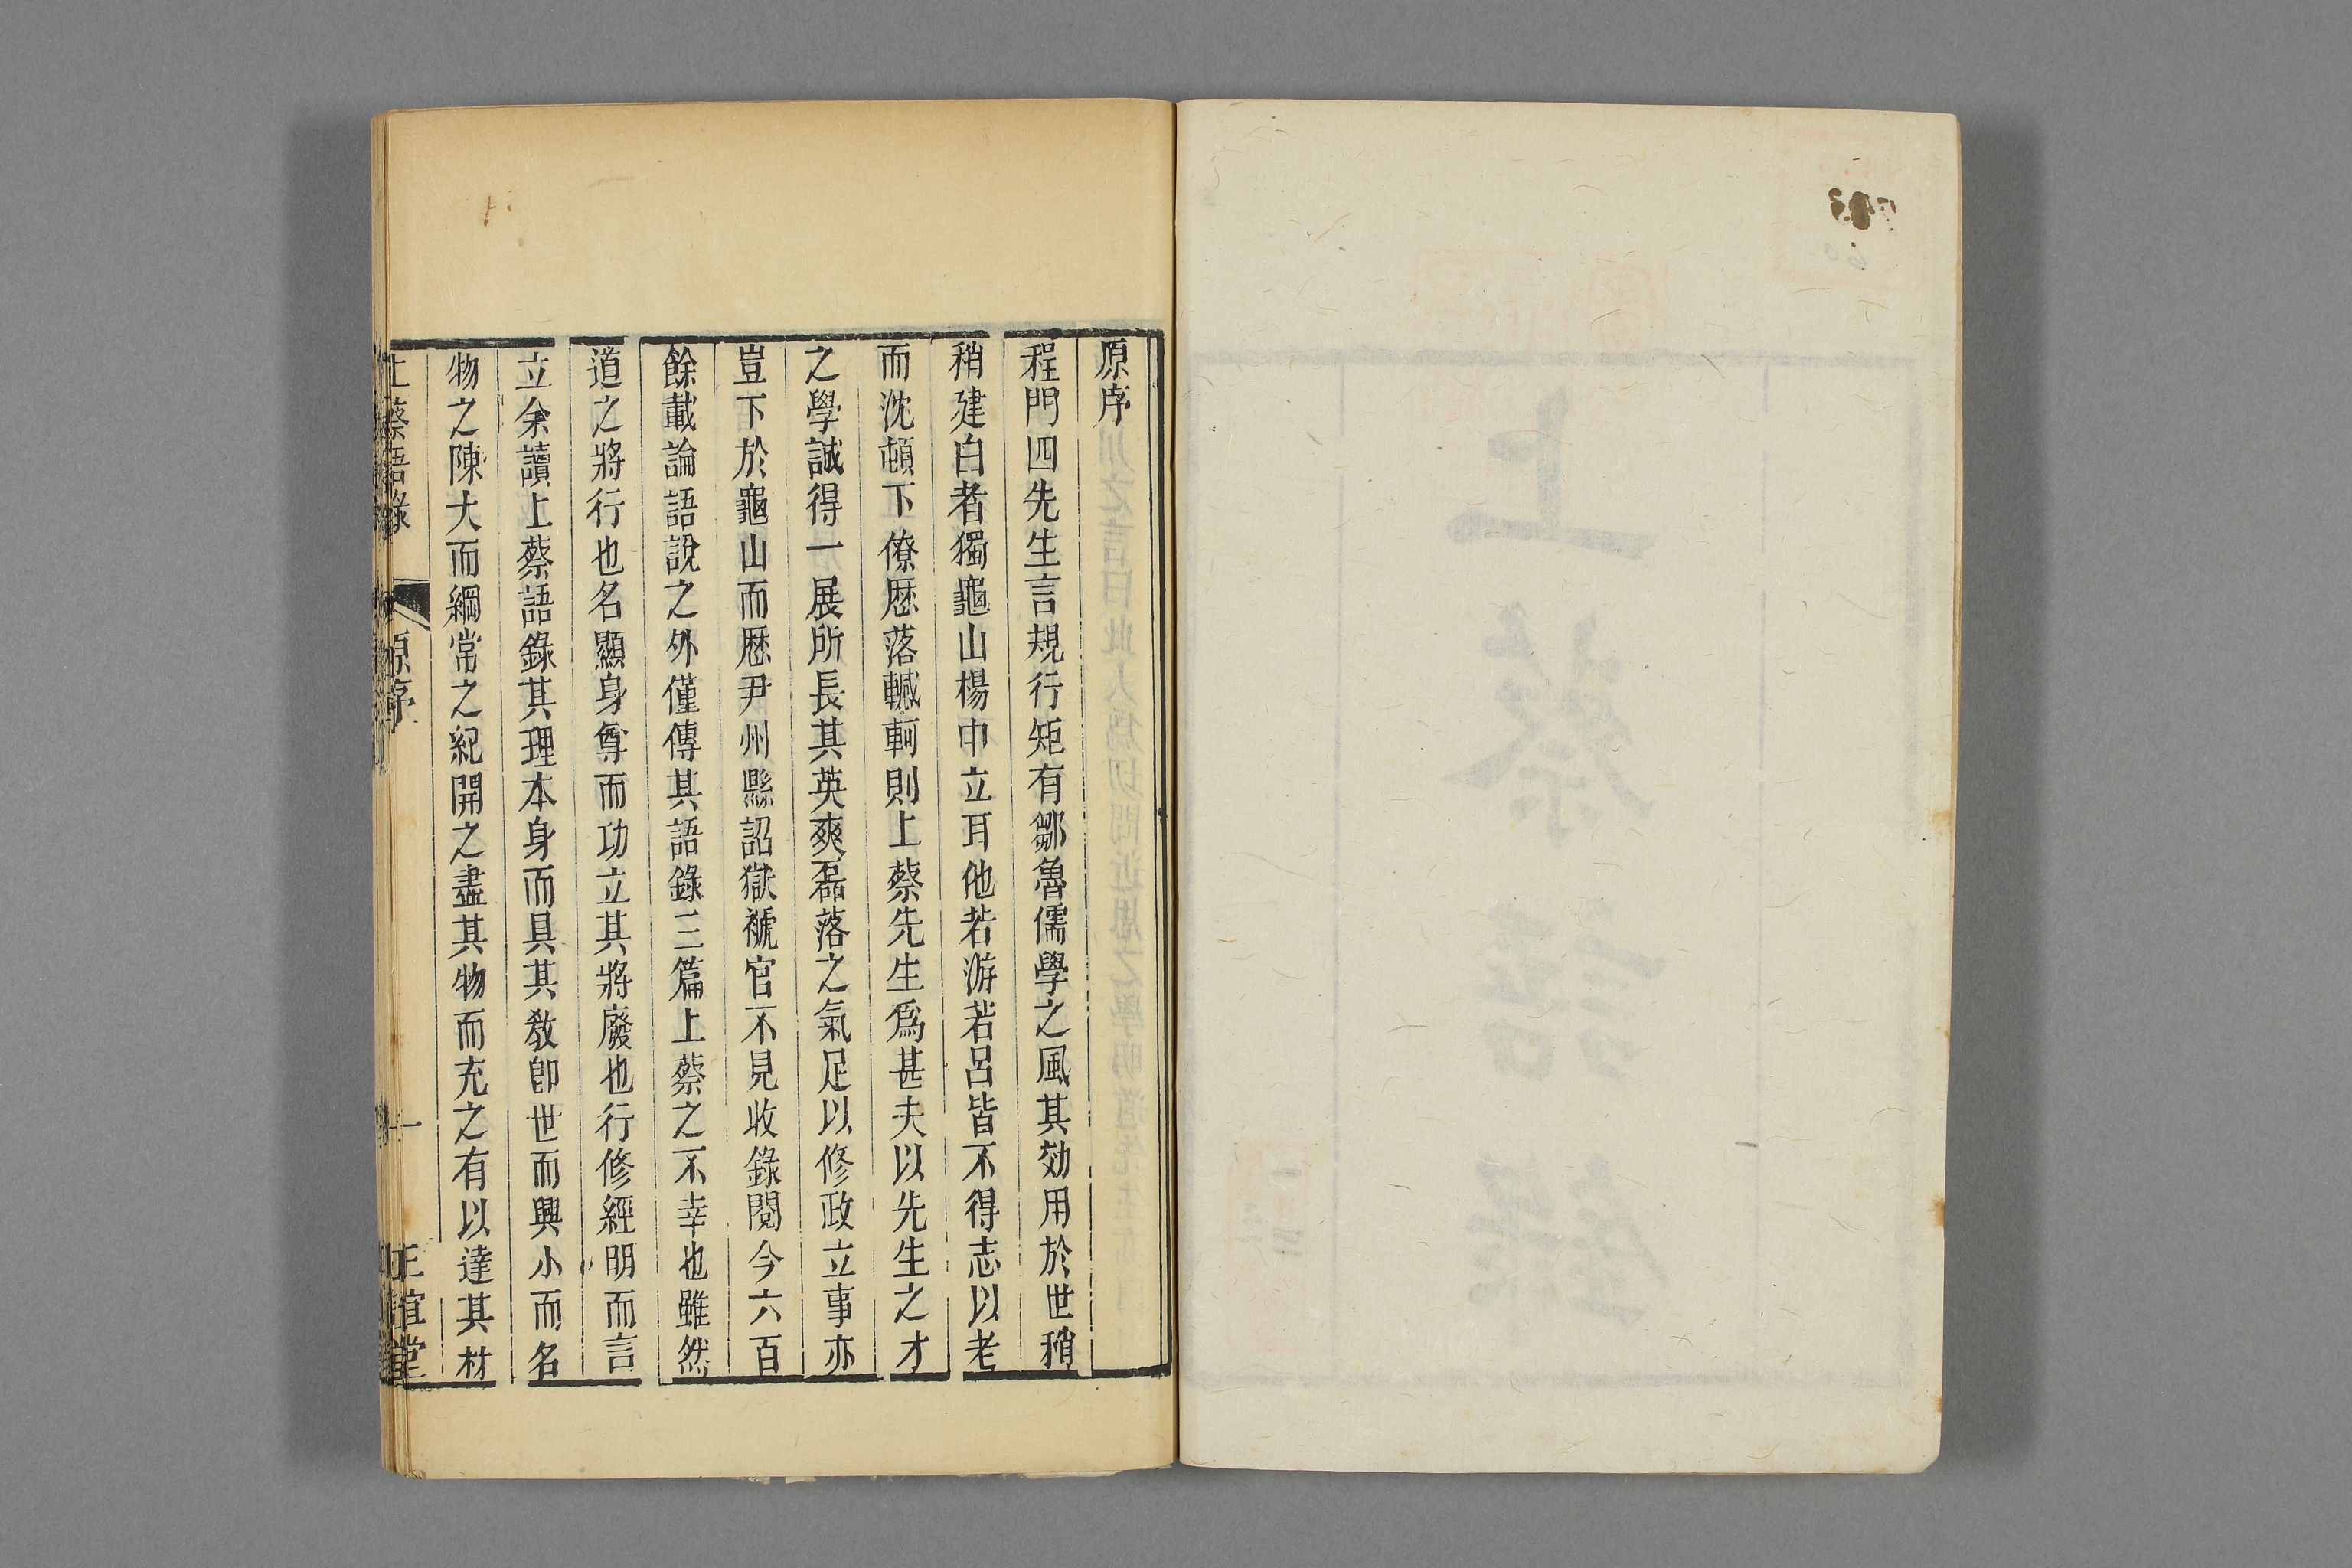 原序
程門四先生言規行矩有鄒魯儒學之風其効用於世稍
稍建白者獨龜山楊中立耳他若游若呂皆不得志以老
而沈頓下僚歷落轗軻則上蔡先生爲甚夫以先生之才
之學誠得一展所長其英爽磊落之氣足以修政立事亦
豈下於龜山而歷尹州縣詔獄褫官不見收錄閱今六百
餘載論語說之外僅傳其語錄三篇上蔡之不幸也雖然
道之將行也名顯身尊而功立其將廢也行修經明而言
立余讀上蔡語錄其理本身而具其教卽世而興小而名
物之陳大而綱常之紀開之盡其物而充之有以達其材
上蔡語錄 原序 一 正誼堂
上蔡語錄